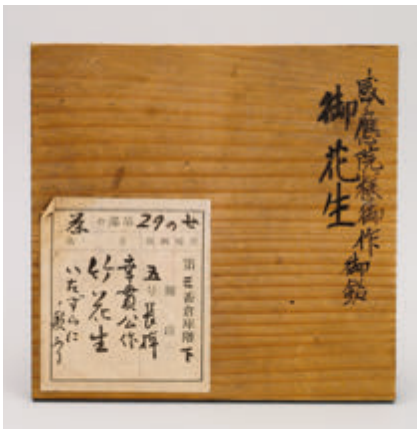 感應院様御作御銘
御花生
茶 29の廿
第四番倉庫階下
五号長棹
幸貫公作
竹花生
いたずらに